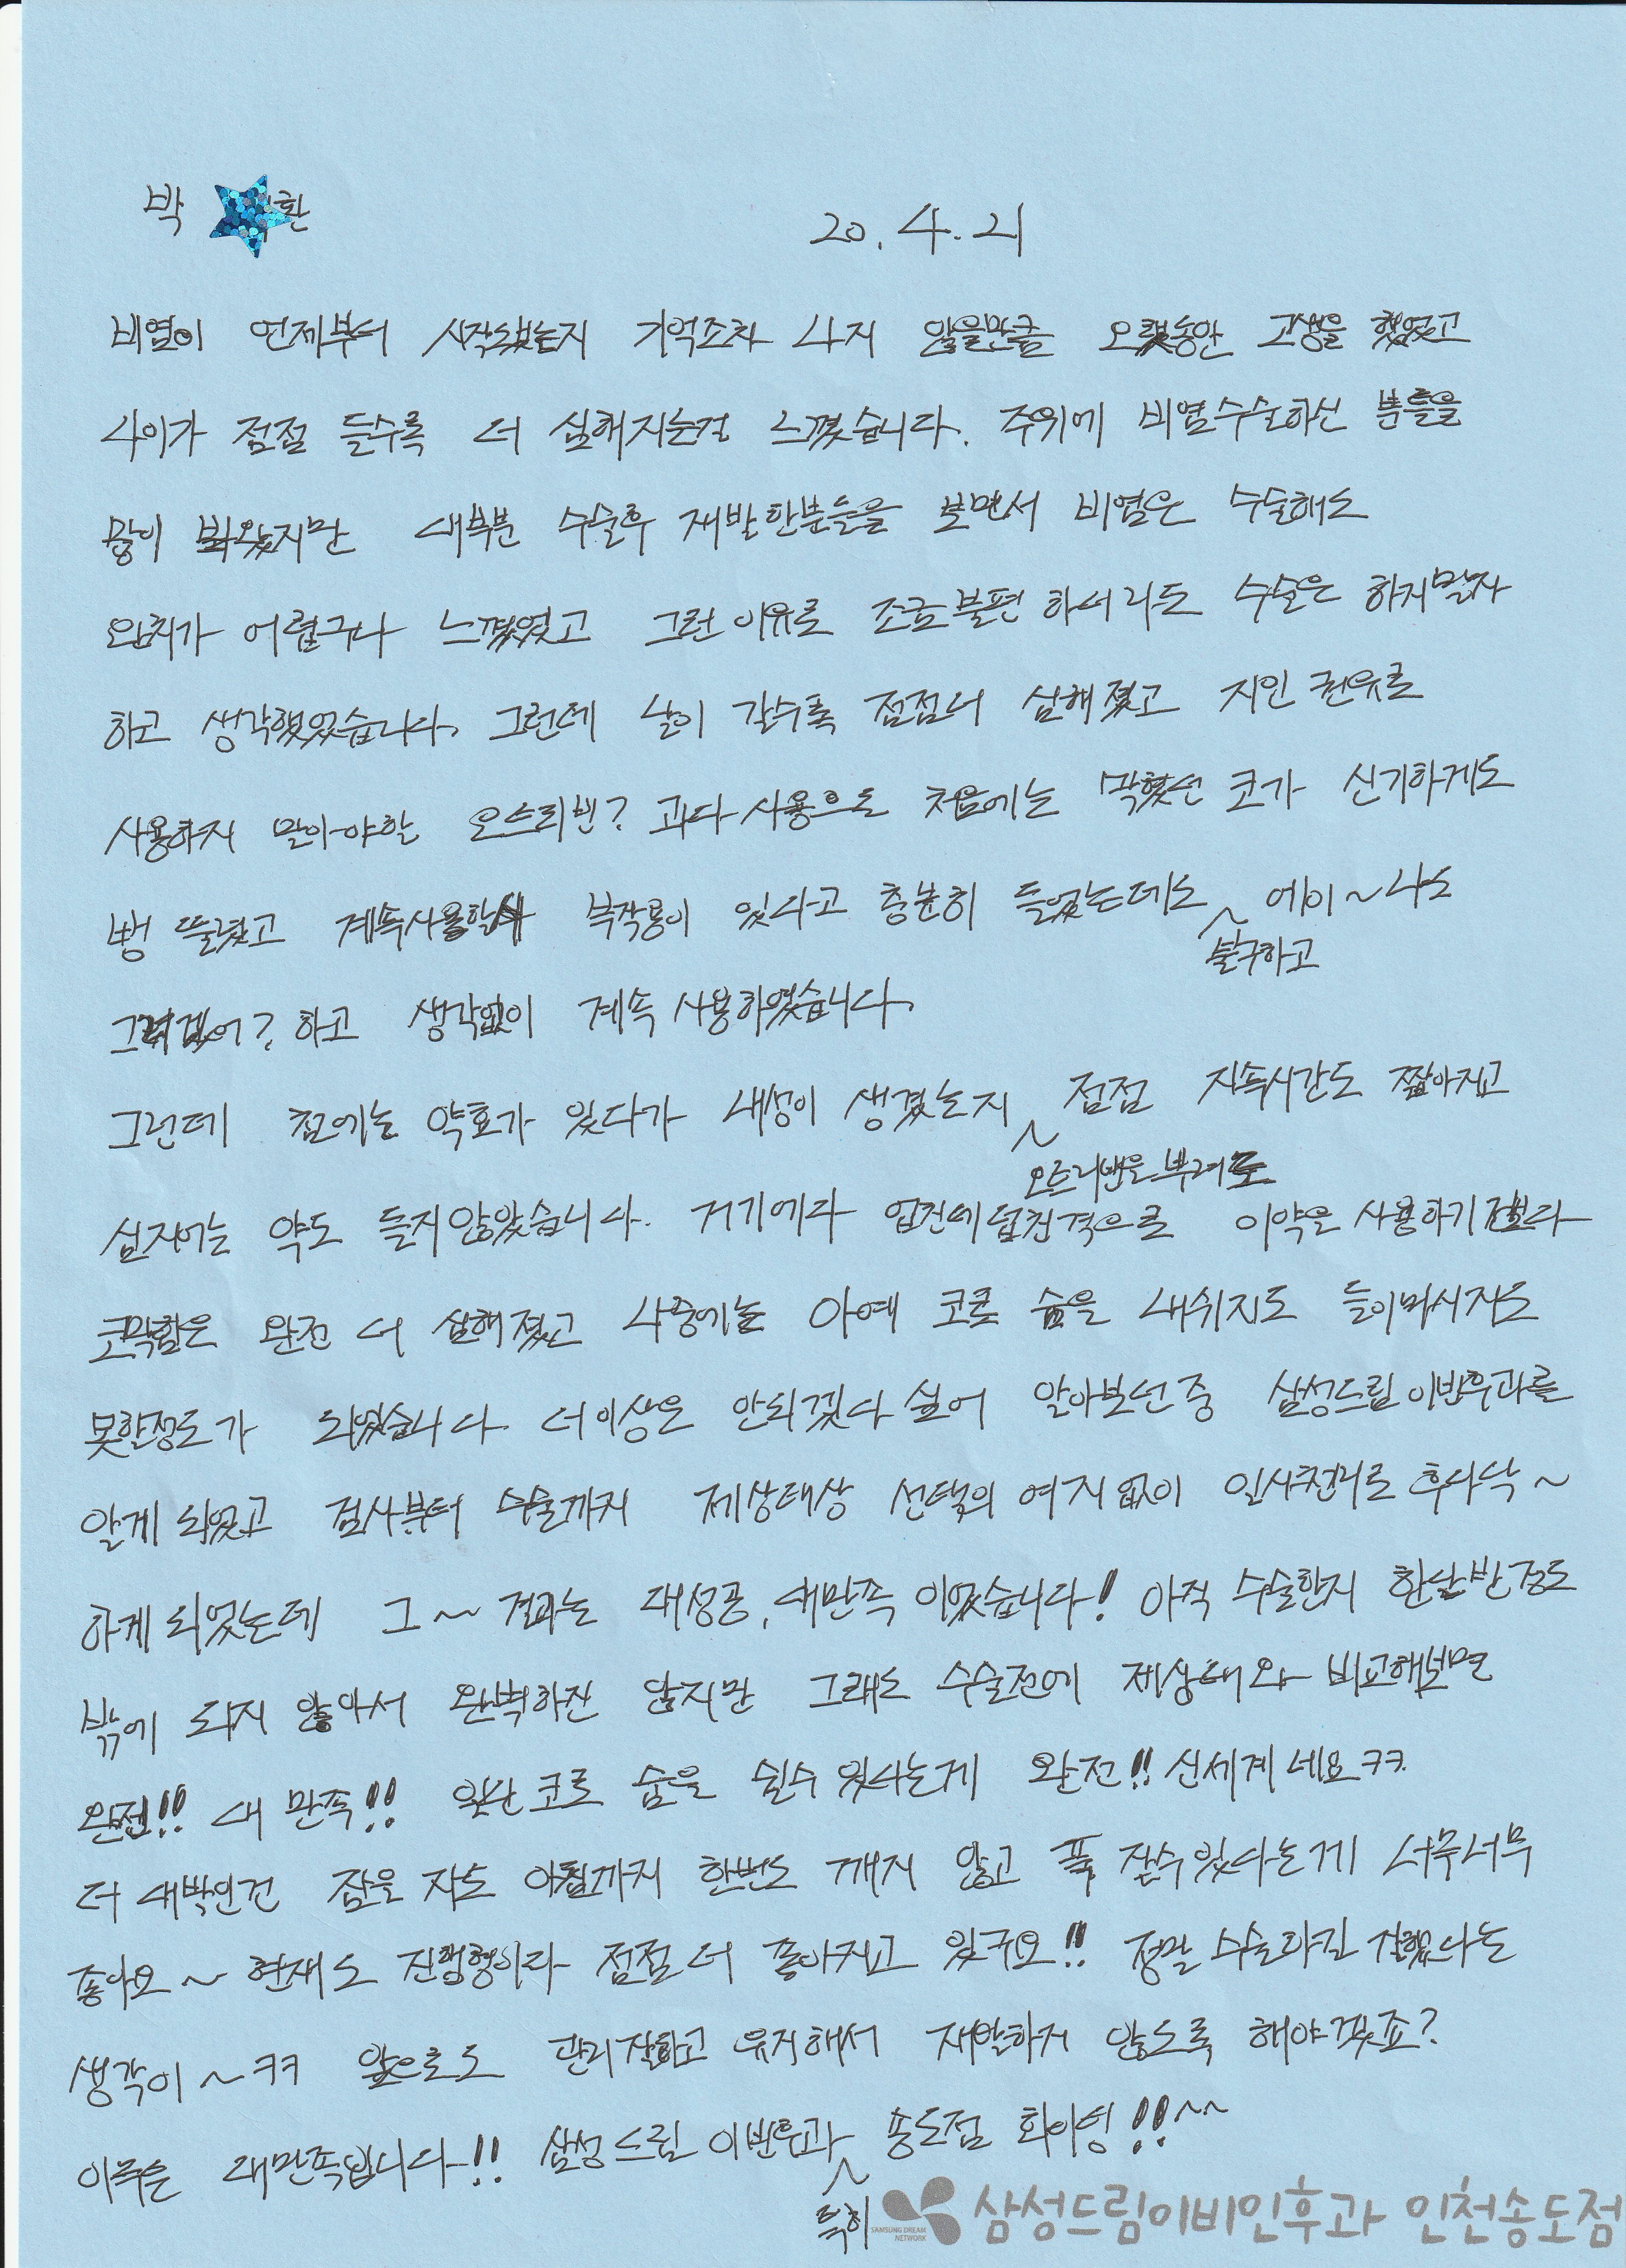 박 환 20. 4. 21
비염이 언제부터 시작됐는지 기억조차 나지 않을만큼 오랫동안 고생을 했었고
나이가 점점 들수록 더 심해지는걸 느꼈습니다. 주위에 비염수술하신 분들을
많이 봐왔지만 대부분 수술후 재발한분들을 보면서 비염은 수술해도
완치가 어렵구나 느꼈었고 그런 이유로 조금 불편 하더라도 수술은 하지말자
하고 생각했었습니다. 그런데 날이 갈수록 점점더 심해졌고 지인 권유로
사용하지 말아야할 오트리빈? 과다 사용으로 처음에는 막혔던 코가 신기하게도
뻥 뚫렸고 계속사용할시 부작용이 있다고 충분히 들었는데도 에이~ 나도
불구하고
그러겠어? 하고 생각없이 계속 사용하였습니다.
그런데 첨에는 약효가 있다가 내성이 생겼는지 점점 지속시간도 짧아지고
오트리빈을 뿌려도
심지어는 약도 듣지않았습니다. 거기에다 엎친데덥친격으로 이약을 사용하기전보다
코막힘은 완전 더 심해졌고 나중에는 아예 코로 숨을 내쉬지도 들이마시지도
못할정도가 되었습니다. 더이상은 안되겠다 싶어 알아보던중 삼성드림이비후과를
알게 되었고 검사부터 수술까지 제상태상 선택의 여지없이 일사천리로 후다닥~
하게 되었는데 그~ 결과는 대성공, 대만족 이었습니다! 아직 수술한지 한달반정도
밖에 되지 않아서 완벽하진 않지만 그래도 수술전에 제상태와 비교해보면
완전!! 대 만족!! 일단 코로 숨을 쉴수 있다는게 완전!! 신세계네요 ㅋㅋ
더 대박인건 잠을 자도 아침까지 한번도 깨지 않고 푹 잘수있다는게 너무너무
좋아요~ 현재도 진행형이라 점점 더 좋아지고 있구요!! 정말 수술하길 잘했다는
생각이~ㅋㅋ 앞으로도 관리잘하고 유지해서 재발하지 않도록 해야겠죠?
이루는 대만족입니다!! 삼성드림 이빈후과 송도점 화이팅!!^^
특히
SAMSUNG DREAM NETWORK 삼성드림이비인후과 인천송도점